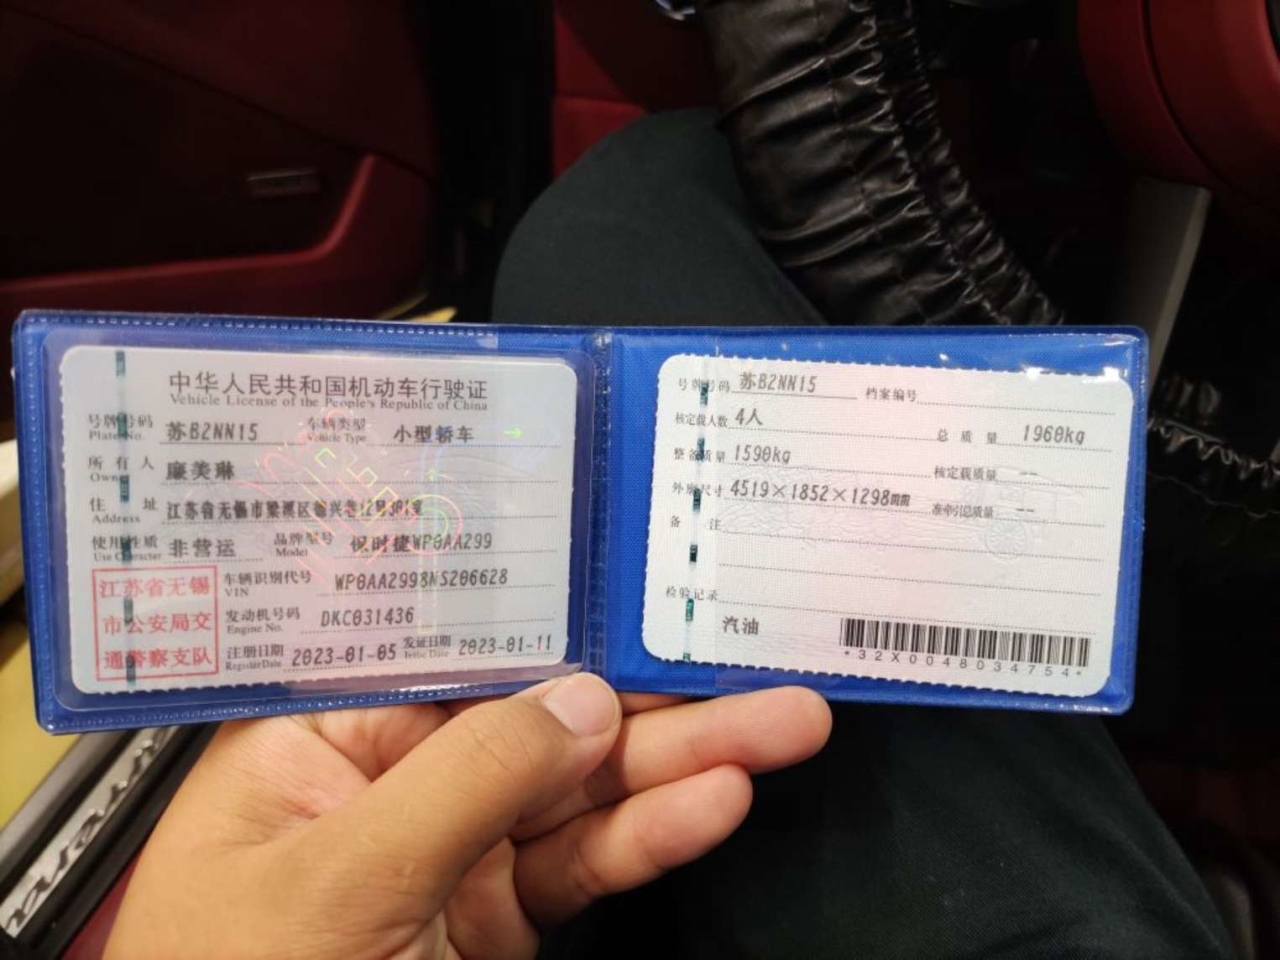 中华人民共和国机动车行驶证
Vehicle License of the People's Republic of China
号牌号码 苏B2NN15 车辆类型 小型轿车
Plate No. Vehicle Type
所有人 廉美琳
Owner
住址 江苏省无锡市梁溪区
Address
使用性质 非营运 品牌型号 保时捷WP0AA299
Use Character Model
江苏省无锡
市公安局交
通警察支队
车辆识别代号 WP0AA2998NS206628
VIN
发动机号码 DKC031436
Engine No.
注册日期 2023-01-05 发证日期 2023-01-11
Register Date Issue Date
号牌号码 苏B2NN15 档案编号
核定载人数 4人 总质量 1960kg
整备质量 1590kg 核定载质量 --
外廓尺寸 4519×1852×1298mm 准牵引总质量 --
备注
检验记录
汽油
*32X0048034754*